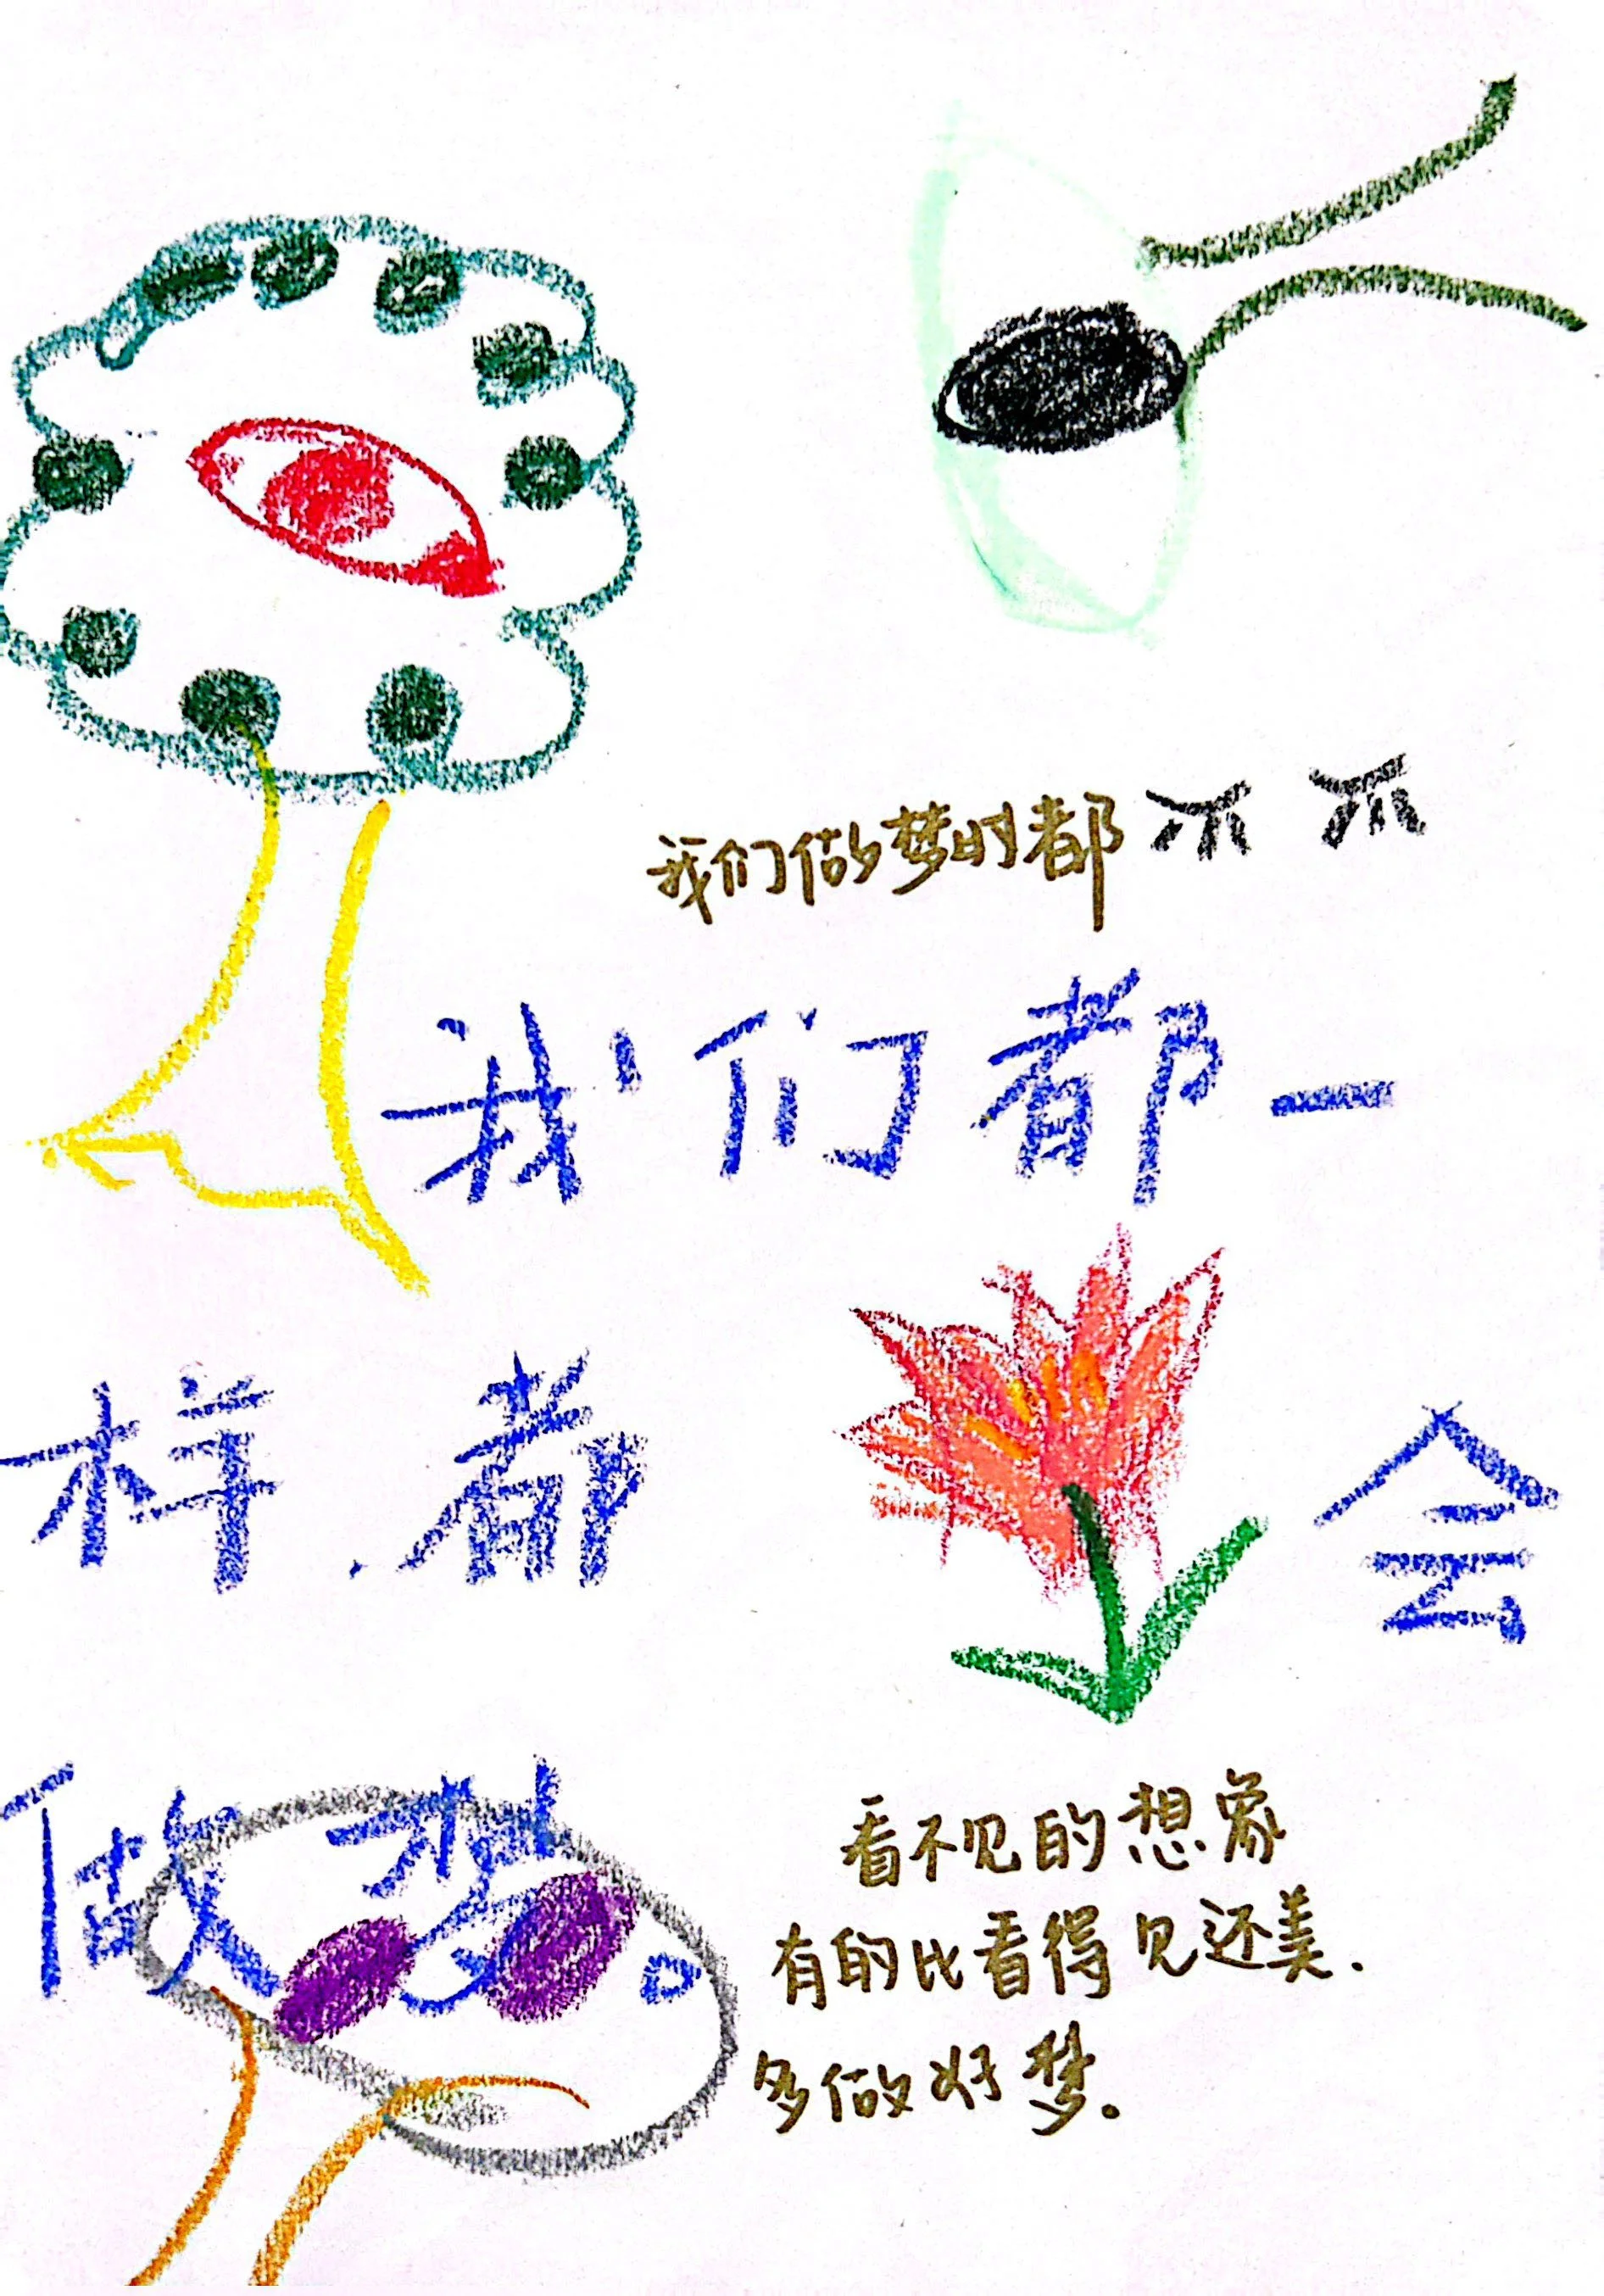 我们做梦时都
我们都一
样.都会
做梦
看不见的想象
有的比看得见还美.
多做好梦.